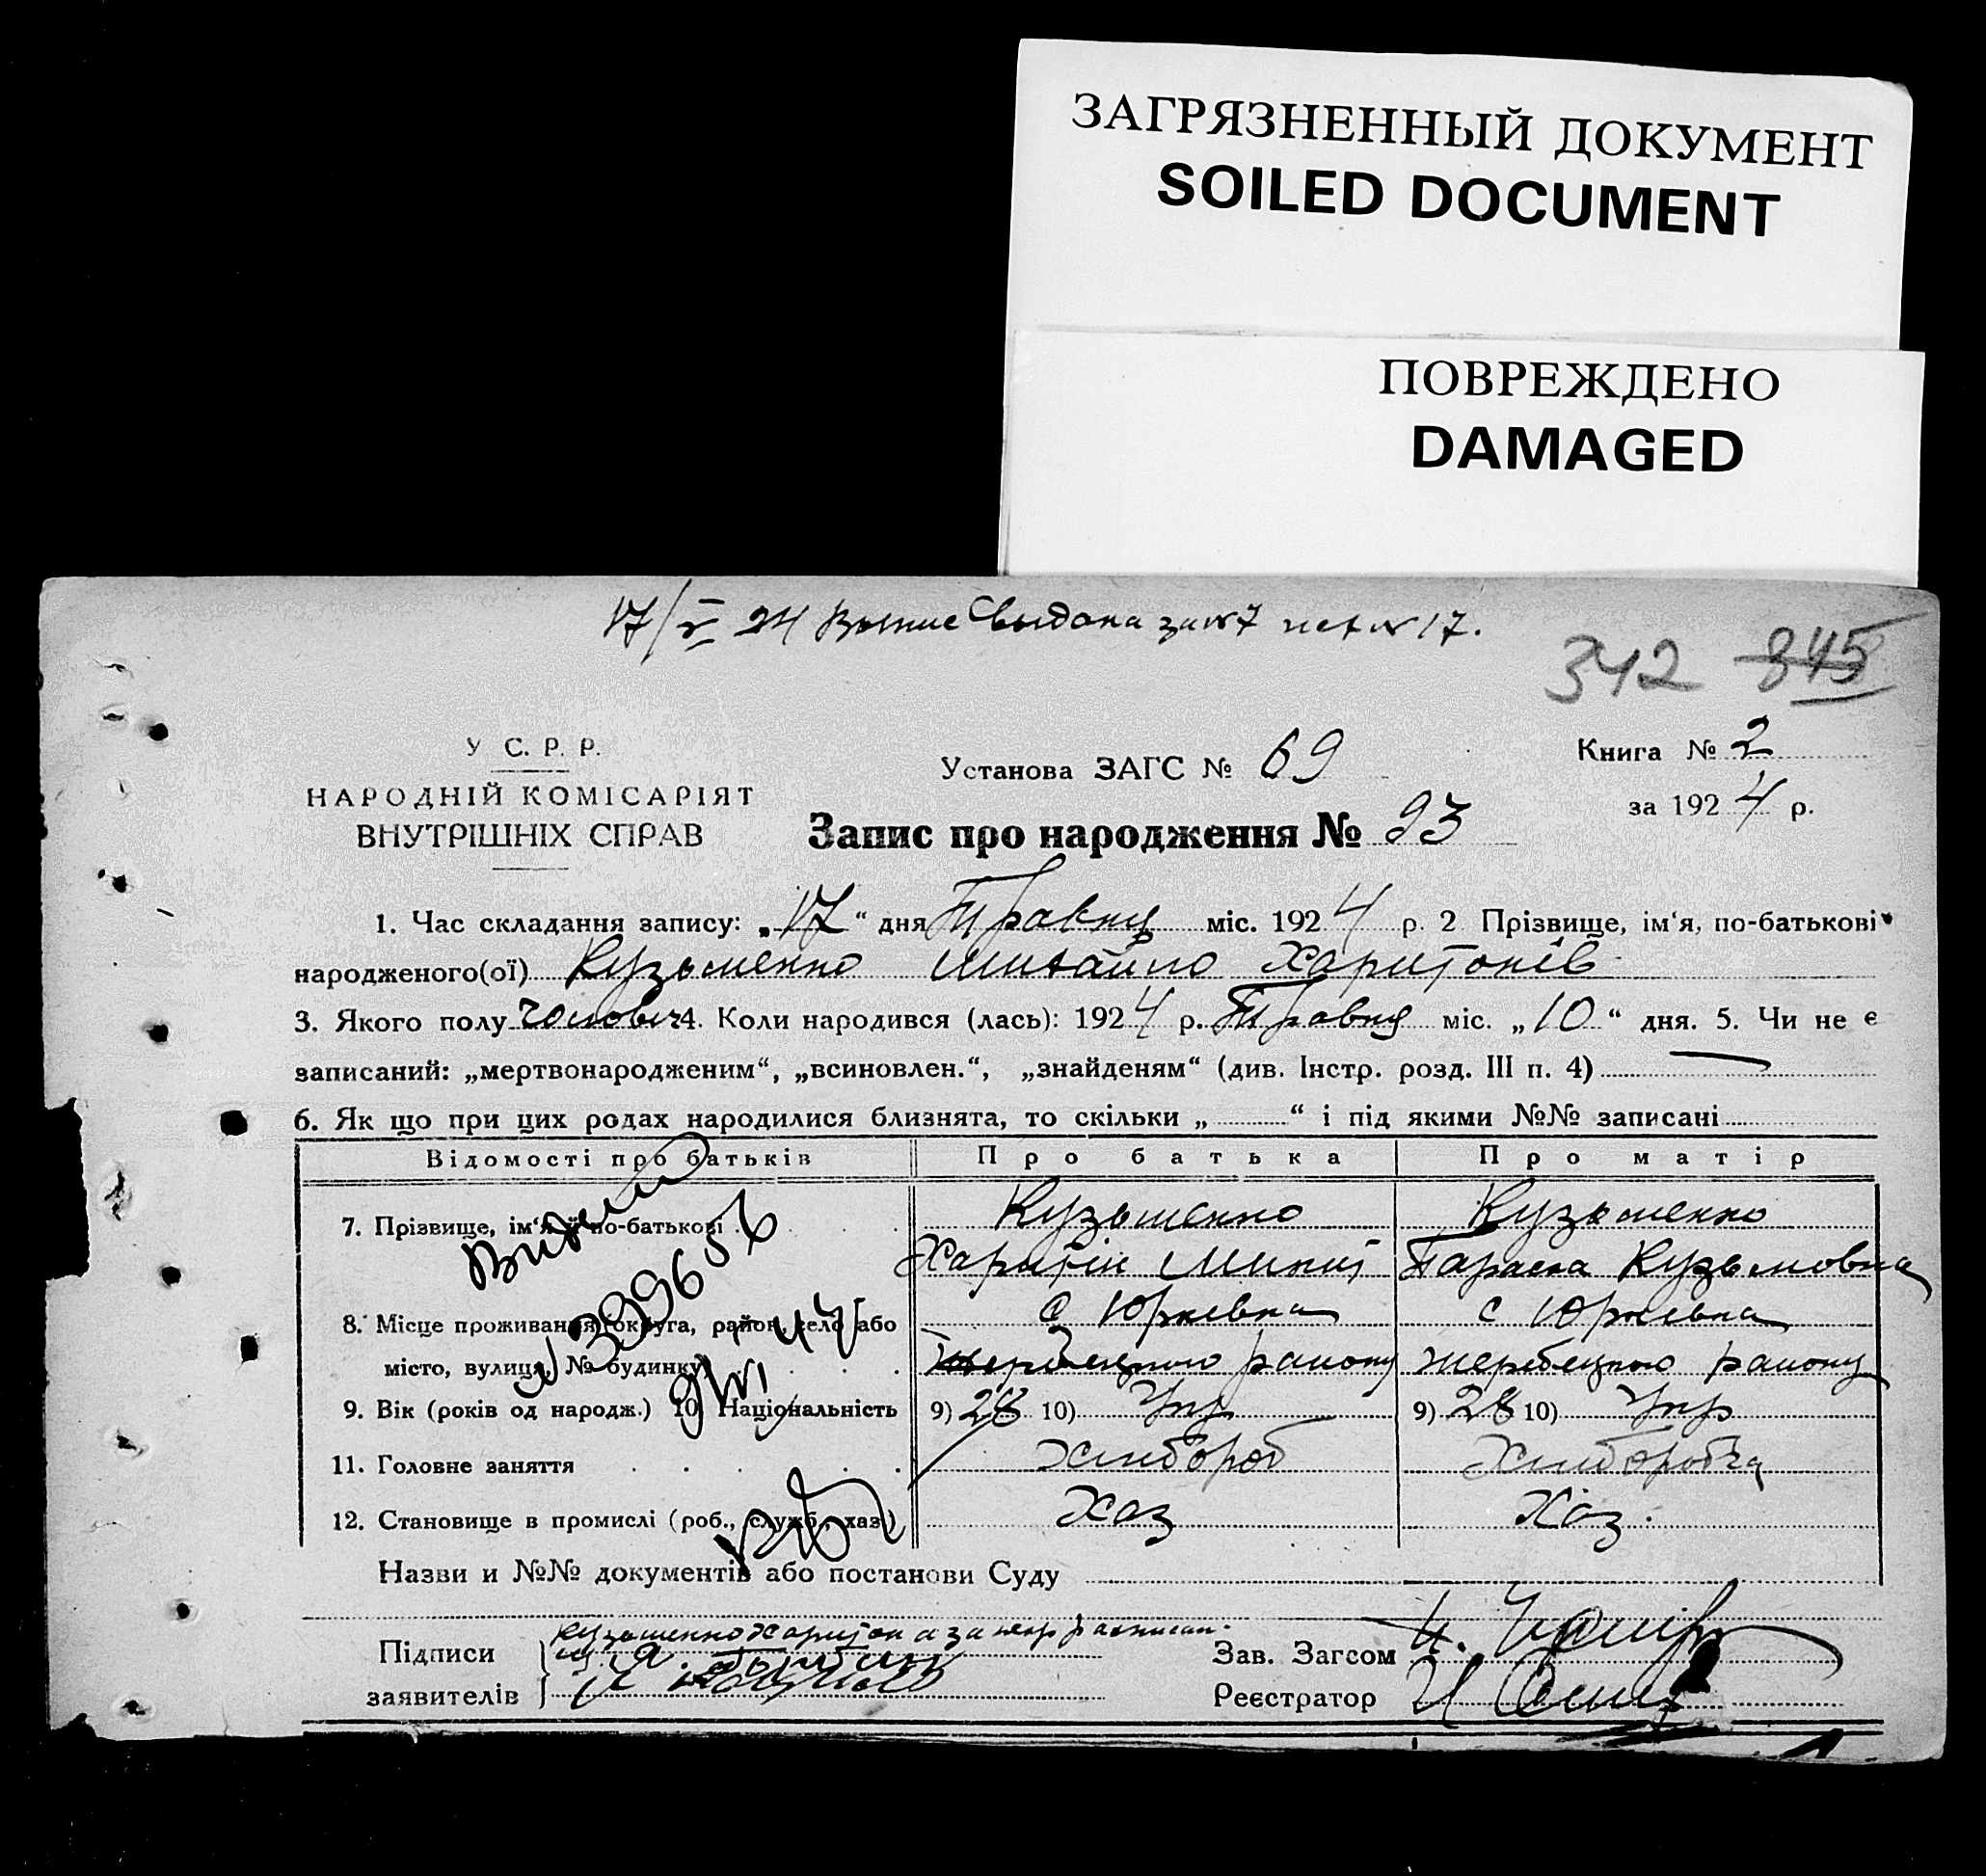 ЗАГРЯЗНЕННЫЙ ДОКУМЕНТ
SOILED DOCUMENT
ПОВРЕЖДЕНО
DAMAGED
17/V 24 выдана за №7
342 345
У С. Р. Р.
НАРОДНІЙ КОМІСАРІЯТ
ВНУТРІШНІХ СПРАВ
Установа ЗАГС № 69
Книга № 2
за 1924 р.
Запис про народження № 93
1. Час складання запису: „17“ дня Травня міс. 1924 р. 2 Прізвище, ім'я, по-батькові
народженого(ої) Кузьменко Михайло Харитонів
3. Якого полу чоловіч 4. Коли народився (лась): 1924 р. Травня міс. „10“ дня. 5. Чи не є
записаний: „мертвонародженим“, „всиновлен.“, „знайденям“ (див. Інстр. розд. III п. 4) —
6. Як що при цих родах народилися близнята, то скільки „ “ і під якими №№ записані
Відомості про батьків Про батька Про матір
7. Прізвище, ім'я й по-батькові Кузьменко Кузьменко
Харитін Микит Параска Кузьмовна
8. Місце проживання (округа, район, село або с Юрківка с Юрківка
місто, вулиця, № будинку) Жеребецкого району Жеребецкого району
9. Вік (років од народж.) 10) Національність 9) 28 10) Укр 9) 28 10) Укр
11. Головне заняття Хлібороб Хліборобка
12. Становище в промислі (роб., служб., хаз.) Хаз Хаз.
Назви и №№ документів або постанови Суду
Підписи Кузьменко Харитон а за
заявителів
Зав. Загсом
Реєстратор